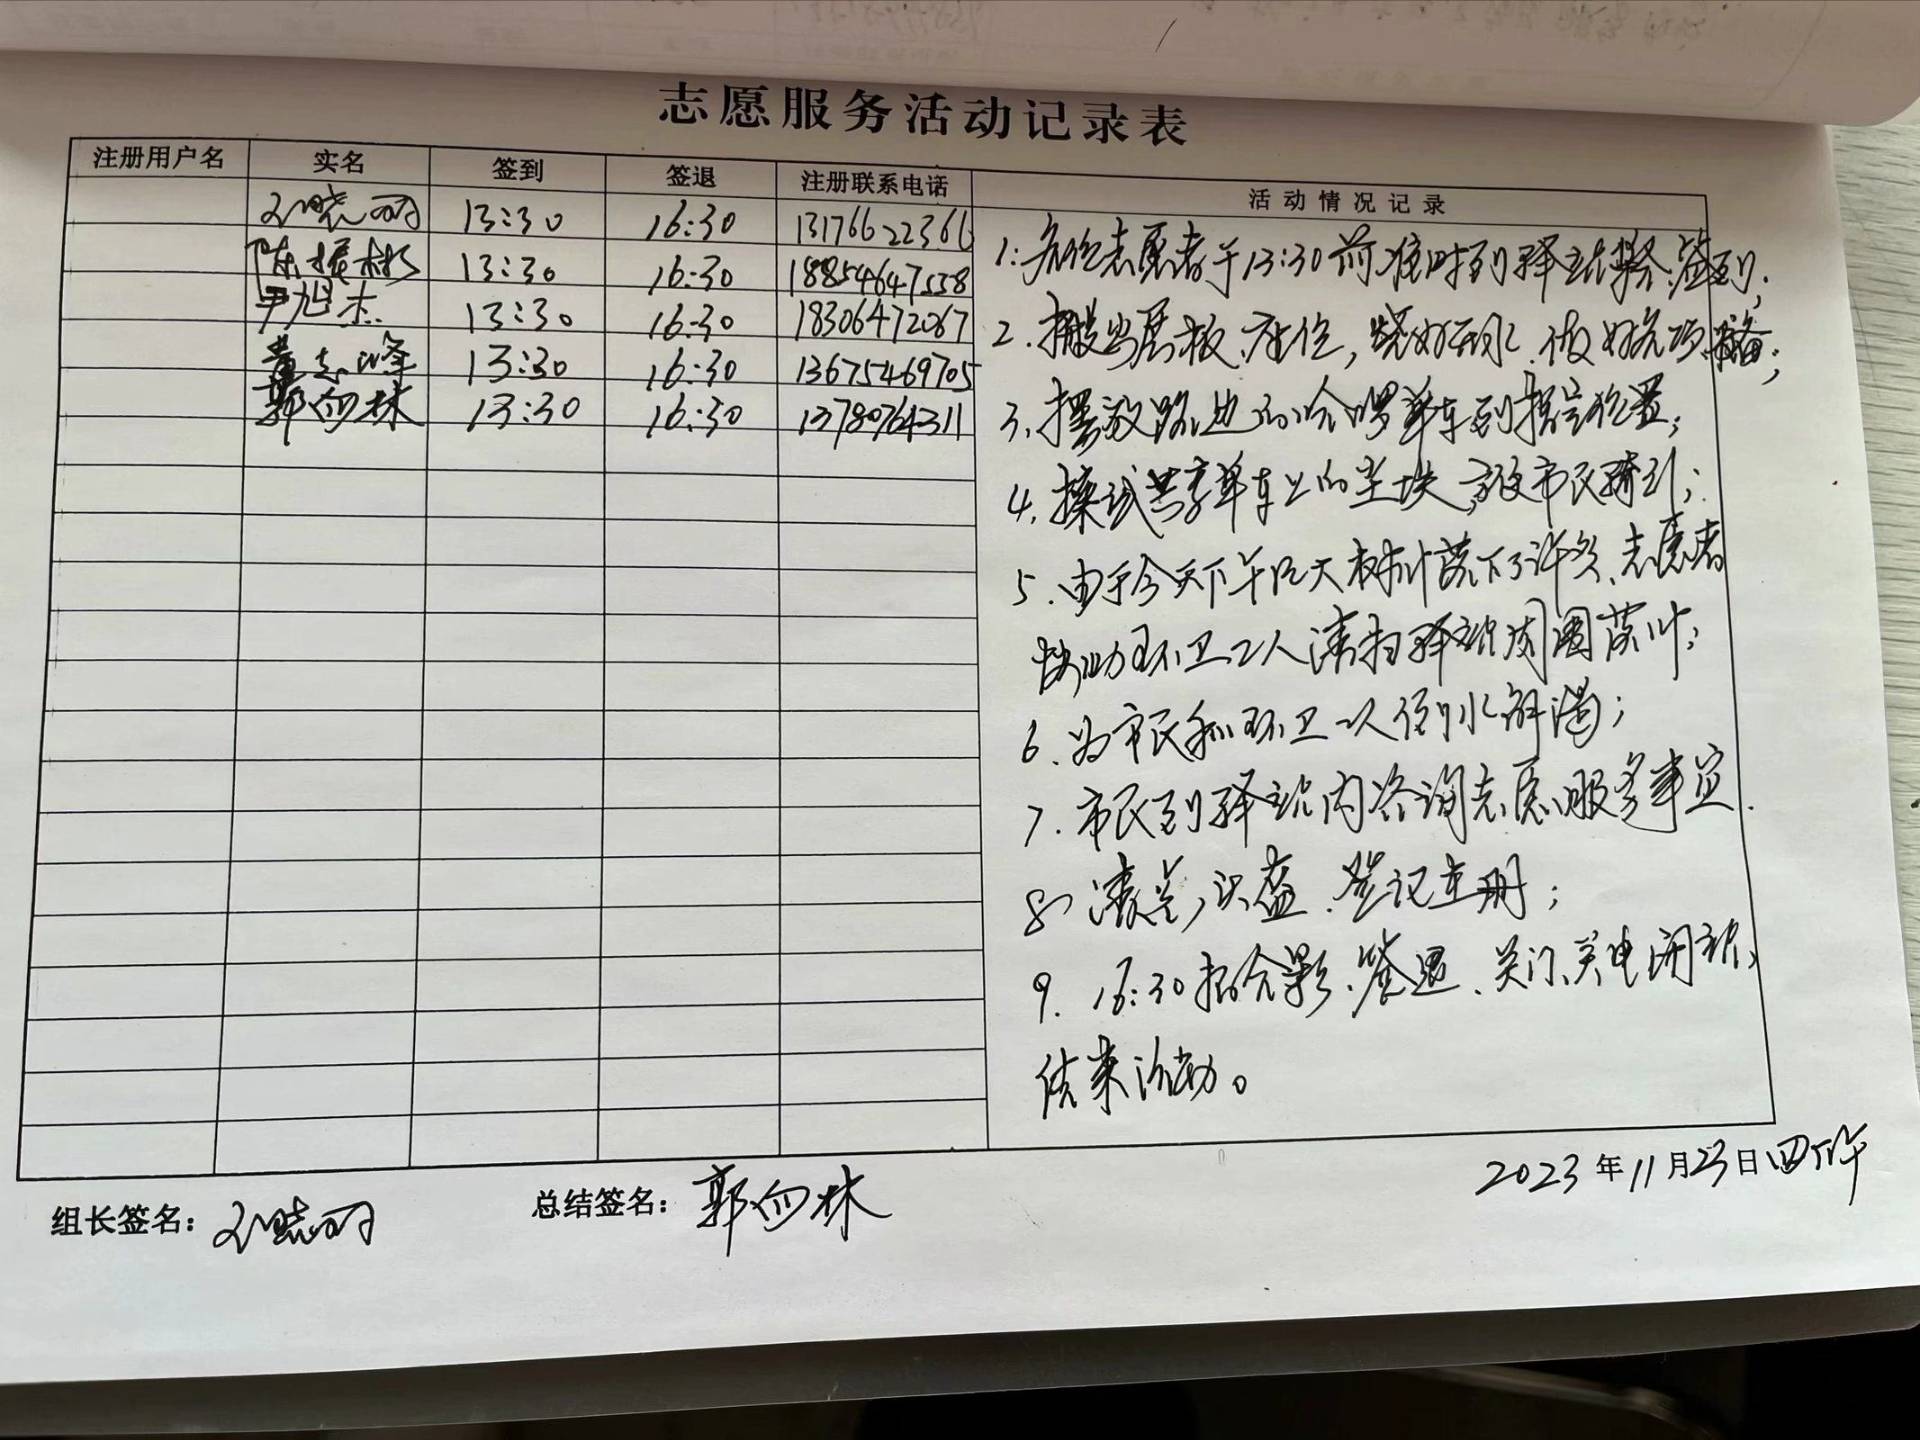 志愿服务活动记录表
注册用户名 实名 签到 签退 注册联系电话 活动情况记录
13:30 16:30 13176622366
陈振彬 13:30 16:30 18854647558
尹旭杰 13:30 16:30 18306472067
董志峰 13:30 16:30 13675469705
郭向林 13:30 16:30 13780764311
1.各位志愿者于13:30前准时到驿站集合、签到;
2.搬出展板、座位,烧好开水、做好各项准备;
3.摆放路边的哈啰单车到指定位置;
4.擦拭共享单车上的坐垫,方便市民骑行;
5.由于今天下午风大树叶落下了许多、志愿者
协助环卫工人清扫驿站周围落叶;
6.为市民和环卫工人倒水解渴;
7.市民到驿站内咨询志愿服务事宜.
8、登记注册;
9.16:30拍合影、签退、关门、关电闭站,
结束活动。
2023年11月23日四下午
组长签名: 总结签名:郭向林